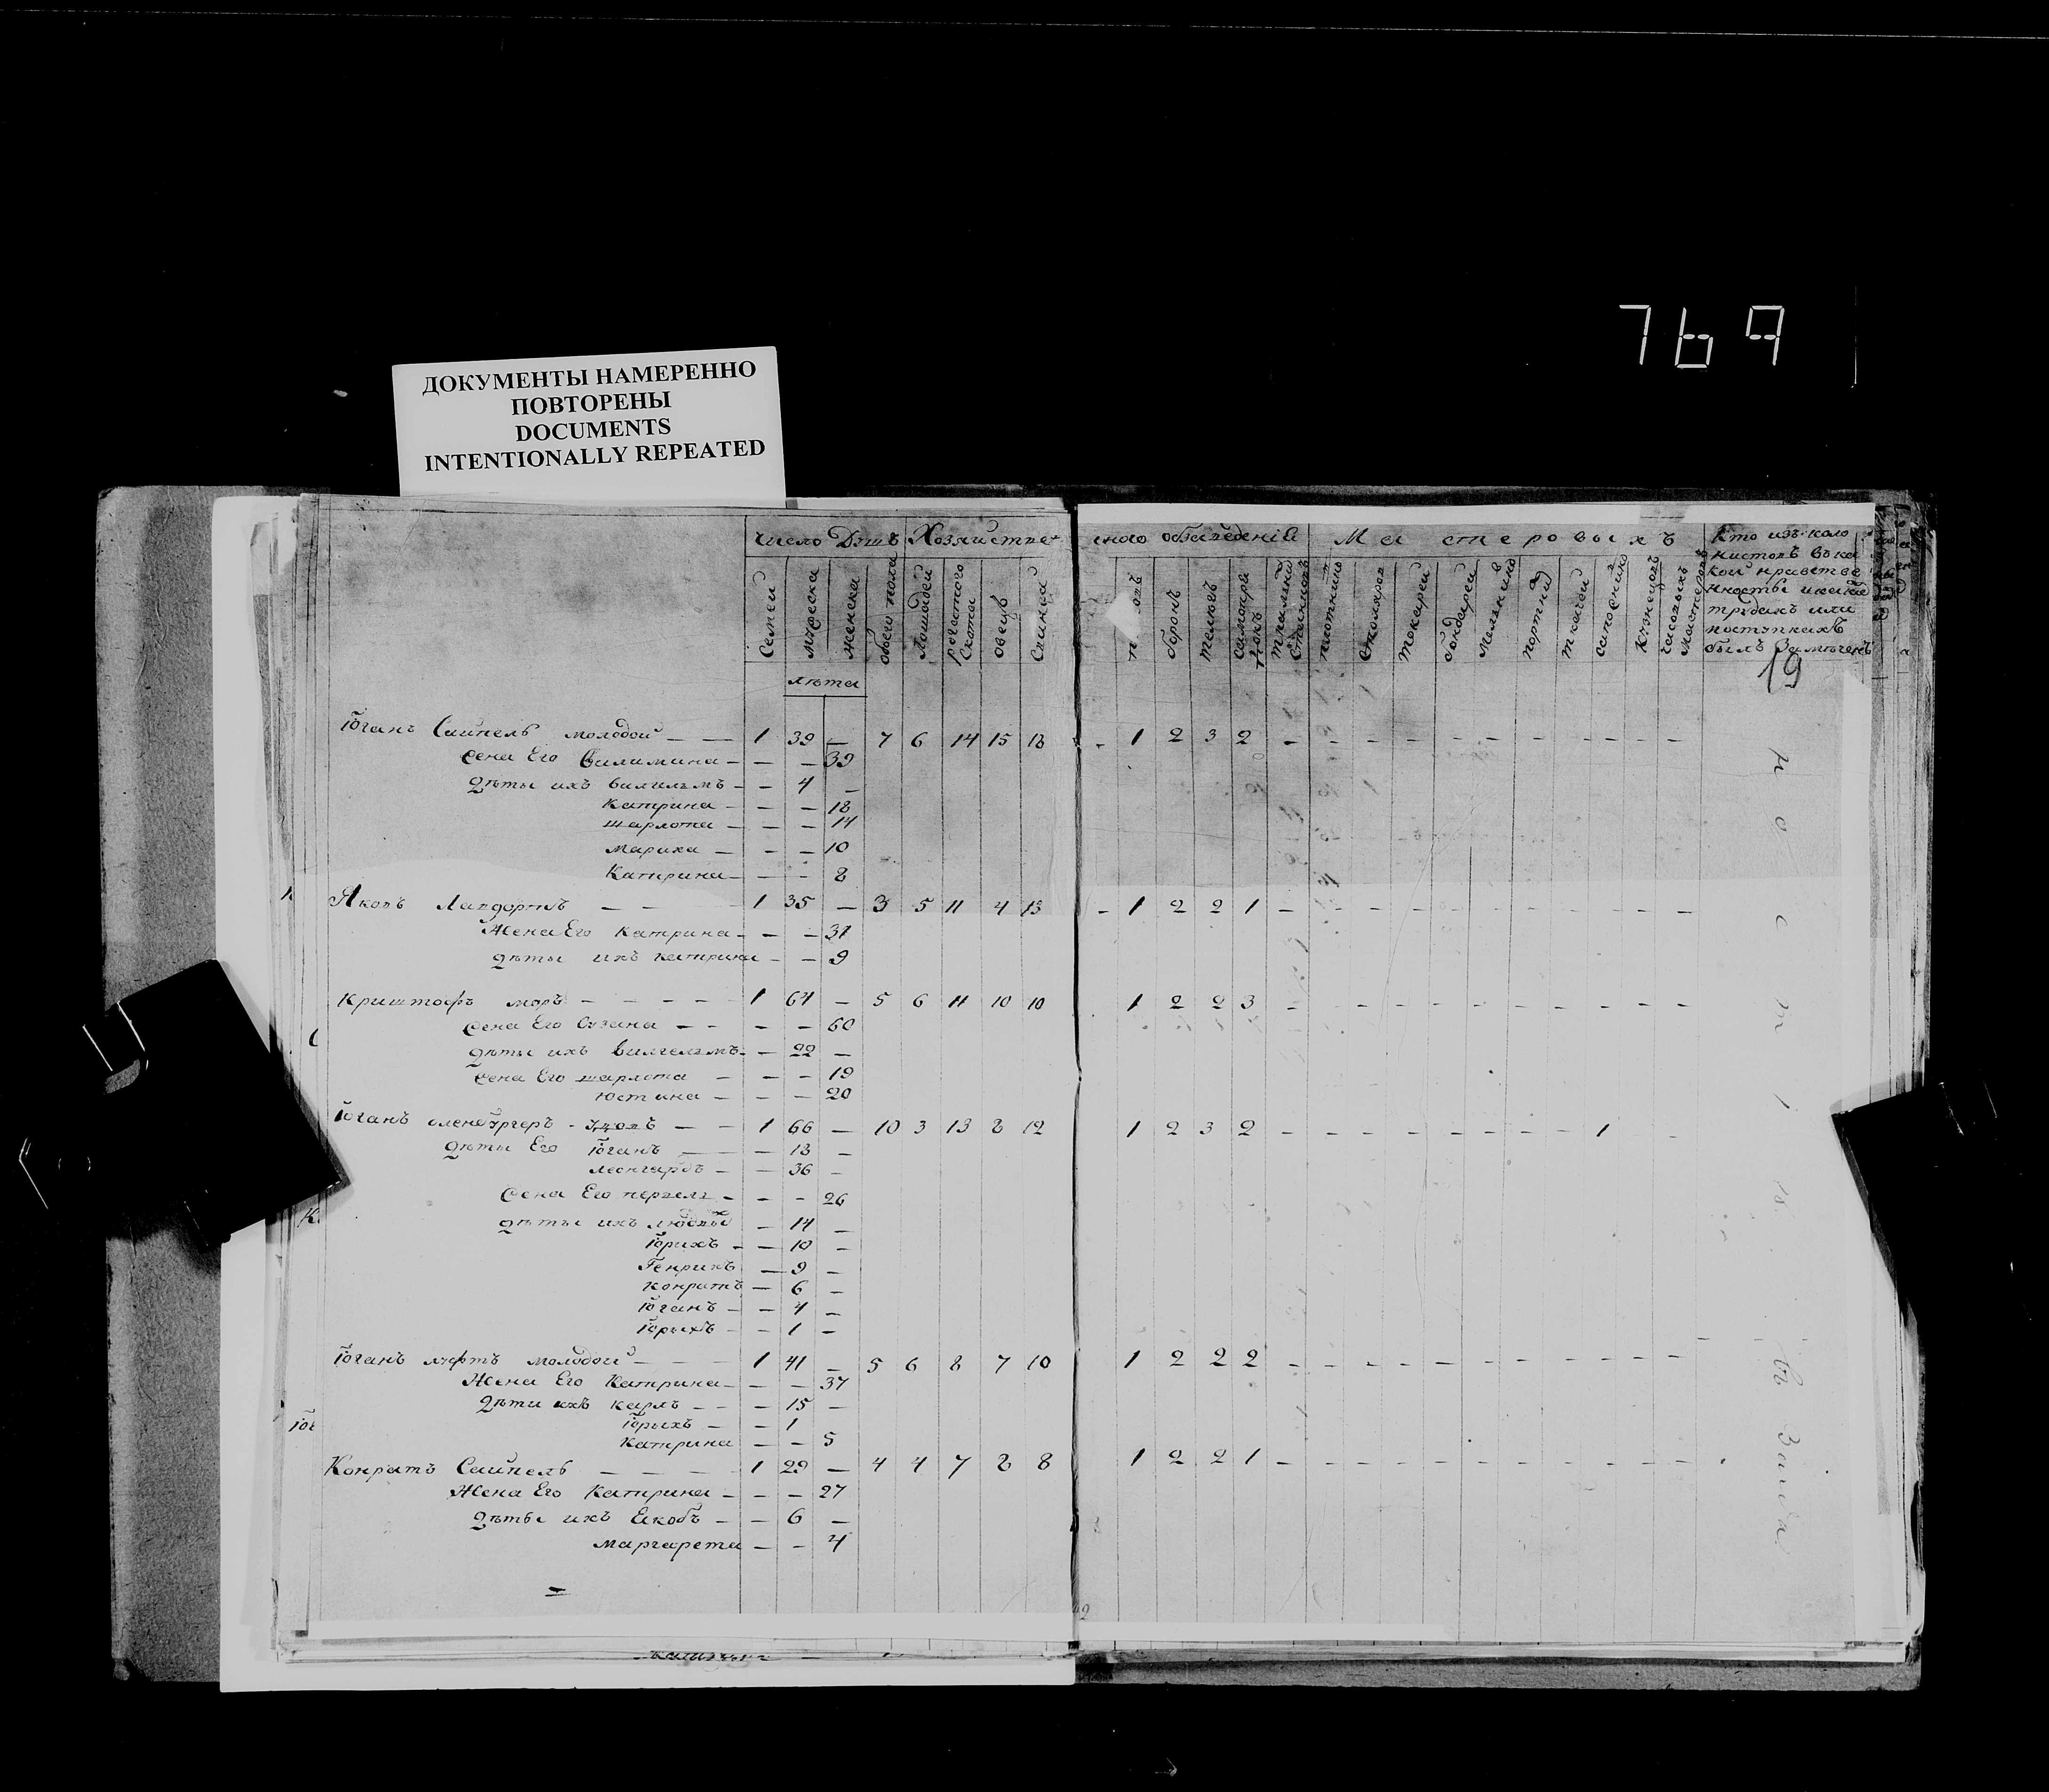 769
ДОКУМЕНТЫ НАМЕРЕННО
ПОВТОРЕНЫ
DOCUMENTS
INTENTIONALLY REPEATED
Число Душъ Хозяистве-
Семей
мужеска
женска
обоего пола
Лошадей
рогатого Скота
овецъ
Свиней
лѣта
Iоганъ Сайпель молодой — — 1 39 — 7 6 14 15 18
Сена Его Вилимина — — — 39
Дѣты ихъ вилилемъ — — 4 —
Катрина — — — 18
шарлота — — — 14
Марика — — — 10
Катрина — — — 8
Якопъ — — 1 35 — 3 5 11 4 13
Жена Его Катрина — — — 31
дѣты ихъ катрина — — 9
Криштофъ моръ — — — — — 1 64 — 5 6 11 10 10
Сена Его Сузана — — — — 60
дѣты ихъ вилгелмъ — — 22 —
Сена Его шарлота — — — 19
Юстина — — — 20
Iоганъ — — 1 66 — 10 3 13 8 12
дѣты Его Iоганъ — — 18 —
леонгардъ — — 36 —
Сена Его — — — 26
дѣты ихъ — 14 —
Iорихъ — — 10 —
Генрихъ — 9 —
Конратъ — 6 —
Iоганъ — — 4 —
Iорихъ — — 1 —
Iоганъ луфтъ молодой — — — 1 41 — 5 6 8 7 10
Жена Его Катрина — — — 37
Дѣти ихъ карлъ — — — 15 —
Iорихъ — — 1
Катрина — — 5
Конратъ Сайпель — — — — 1 29 — 4 4 7 8 8
Жена Его Катрина — — — 27
дѣты ихъ Екобъ — — 6 —
маргарета — — 4
=
ного обзаведенiя Мастеровыхъ
боронъ
телегъ
самопрялокъ
плотниковъ
Столяров
токарей
бондарей
мельников
портных
ткачей
сапожников
Кузнецовъ
часовыхъ мастеровъ
Кто изъ коло
нистовъ въ ка
кой нравстве
нности и какие
трудахъ или
поступкахъ
былъ Замѣченъ
19
- 1 2 3 2 — — — — — — — — — — —
- 1 2 2 1 — — — — — — — — — — —
1 2 2 3 — — — — — — — — — — —
1 2 3 2 — — — — — — — — 1 — —
1 2 2 2 — — — — — — — — — — —
1 2 2 1 — — — — — — — — — — —